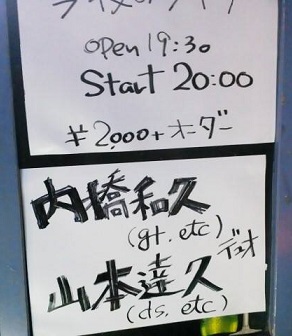 open 19:30
Start 20:00
¥2,000+オーダー
内橋和久
(gt. etc)
デュオ
山本達久
(ds. etc)